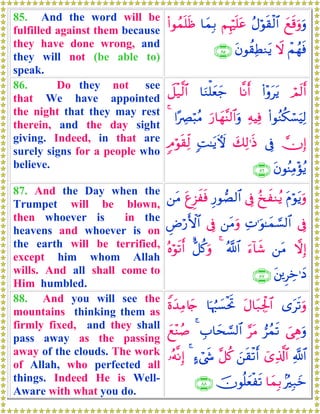 85. And the word will be
fulfilled against them because
they have done wrong, and
they will not (be able to)
speak.
وَوَقَعَ ٱلْقَوْلُ عَلَيْهِم بِمَا ظَلَمُوا۟
فَهُمْ لَا يَنطِقُونَ ٨٥
86. Do they not see
that We have appointed
the night that they may rest
therein, and the day sight
giving. Indeed, in that are
surely signs for a people who
believe.
أَلَمْ يَرَوْا۟ أَنَّا جَعَلْنَا ٱلَّيْلَ
لِيَسْكُنُوا۟ فِيهِ وَٱلنَّهَارَ مُبْصِرًا ۚ
إِنَّ فِى ذَٰلِكَ لَءَايَٰتٍ لِّقَوْمٍ
يُؤْمِنُونَ ٨٦
87. And the Day when the
Trumpet will be blown,
then whoever is in the
heavens and whoever is on
the earth will be terrified,
except him whom Allah
wills. And all shall come to
Him humbled.
وَيَوْمَ يُنفَخُ فِى ٱلصُّورِ فَفَزِعَ مَن
فِى ٱلسَّمَٰوَٰتِ وَمَن فِى ٱلْأَرْضِ
إِلَّا مَن شَآءَ ٱللَّهُ ۚ وَكُلٌّ أَتَوْهُ
دَٰخِرِينَ ٨٧
88. And you will see the
mountains thinking them as
firmly fixed, and they shall
pass away as the passing
away of the clouds. The work
of Allah, who perfected all
things. Indeed He is Well-
Aware with what you do.
وَتَرَى ٱلْجِبَالَ تَحْسَبُهَا جَامِدَةً
وَهِىَ تَمُرُّ مَرَّ ٱلسَّحَابِ ۚ صُنْعَ
ٱللَّهِ ٱلَّذِىٓ أَتْقَنَ كُلَّ شَىْءٍ ۚ إِنَّهُۥ
خَبِيرٌۢ بِمَا تَفْعَلُونَ ٨٨